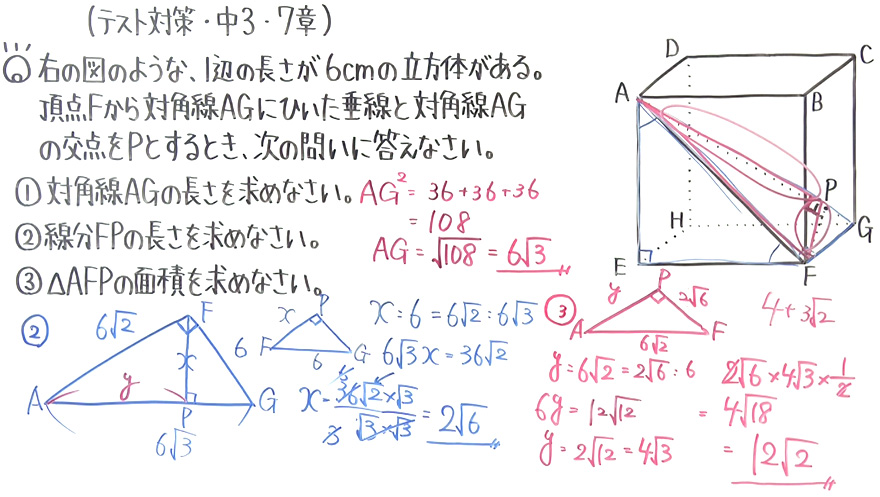 (テスト対策・中3・7章)
右の図のような、1辺の長さが6cmの立方体がある。
頂点Fから対角線AGにひいた垂線と対角線AG
の交点をPとするとき、次の問いに答えなさい。
①対角線AGの長さを求めなさい。
②線分FPの長さを求めなさい。
③△AFPの面積を求めなさい。
AG²=36+36+36
=108
AG=√108=6√3
D
C
A
B
P
H
G
E
F
②
6√2
F
x
6
A
y
P
G
6√3
x
P
F
6
G
x:6=6√2:6√3
6√3x=36√2
x=36√2×√3/3√3×√3=2√6
③
y
P
2√6
A
6√2
F
4+3√2
y:6√2=2√6:6
6y=12√12
y=2√12=4√3
2√6×4√3×1/2
=4√18
=12√2